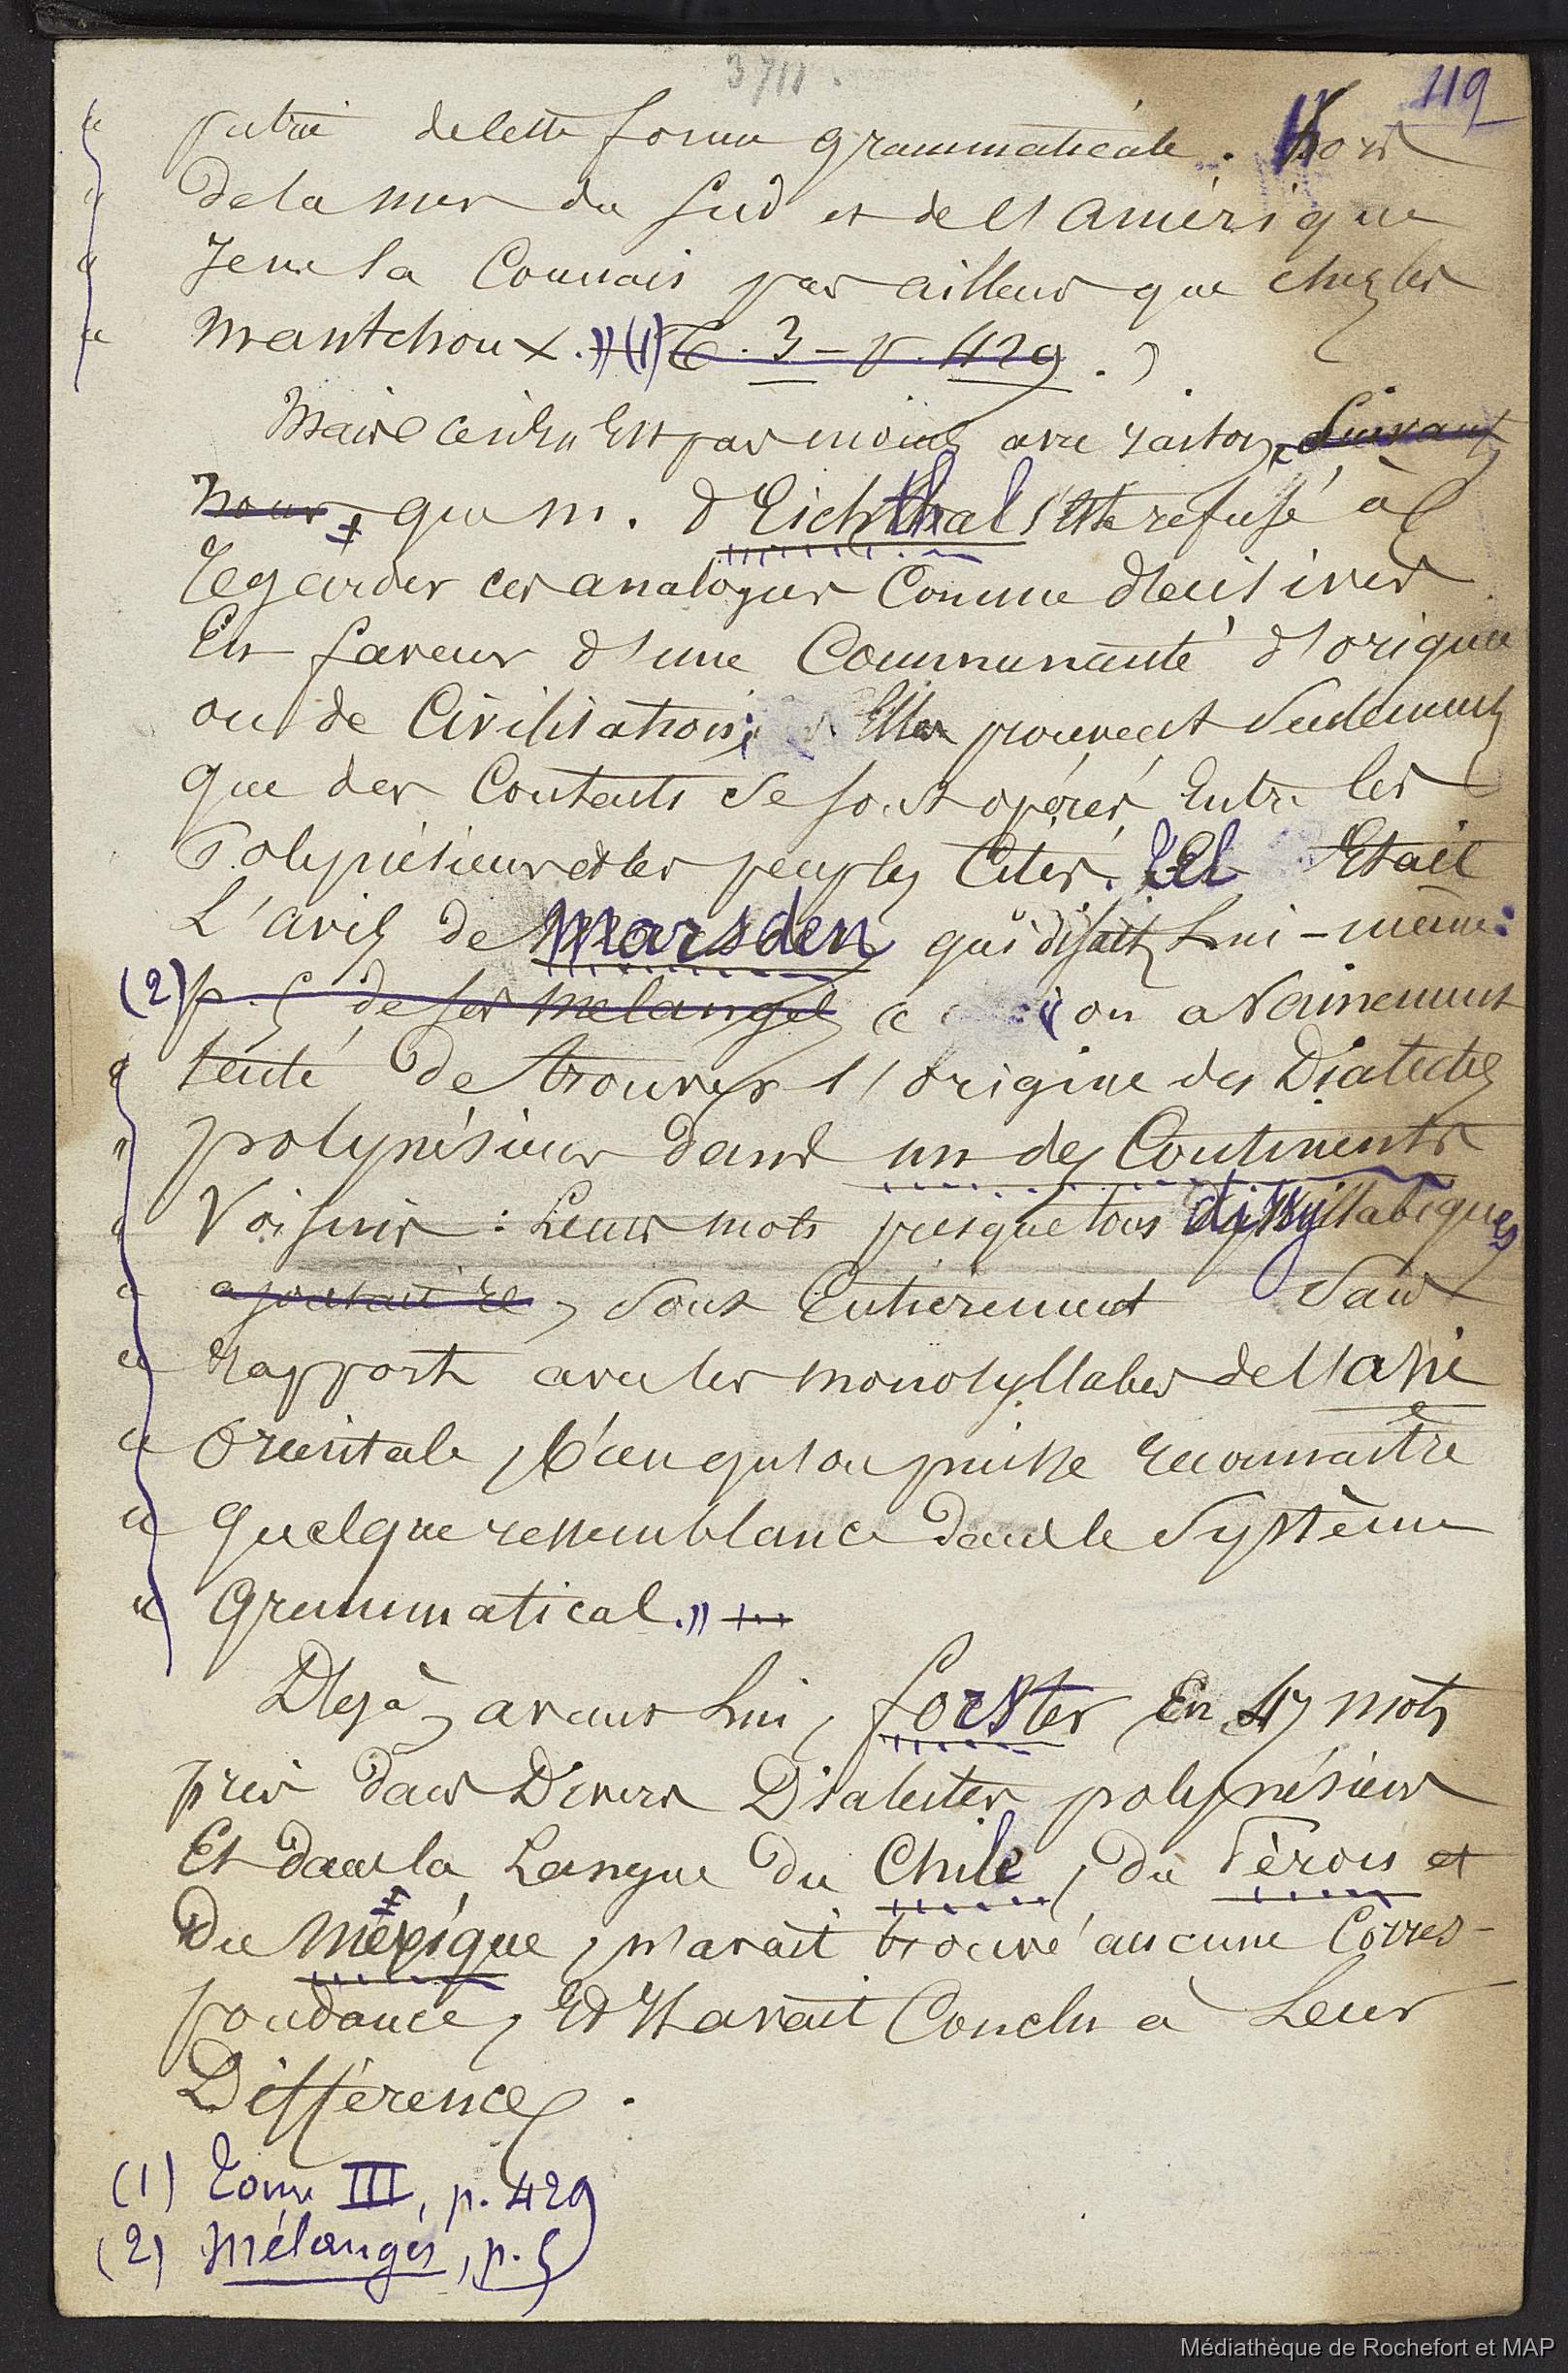 3711.
119
« patrie de cette forme grammaticale. Hors
« de la mer du Sud et de l'amérique
« Je ne la connais pas ailleurs que chez les
« mantchoux.» (1) T. 3 - p. 429. )
Mais ce n'en est pas moins avec raison, Suivant
nous, que M. d'Eichthal s'est refusé à
regarder ces analogies comme décisives
En faveur d'une Communauté d'origine
ou de Civilisation; Elles prouvent seulement
que des Contacts se sont opérés entre les
Polynésiens et les peuples cités. Tel Etait
L'avis de Marsden qui disait Lui-même:
(2) p. 5 de ses mélanges « on a vainement
« tenté de trouver l'origine des Dialectes
« polynésiens dans un des Continents
« Voisins : Leurs mots presque tous dissyllabiques
« ajoutait-il, sont Entièrement Sans
« rapport avec les monosyllabes de l'asie
« Orientale, bien qu'on puisse reconnaître
« quelque ressemblance dans le Système
« Grammatical.»
Déjà, avant Lui, Forster En 47 mots
pris dans Divers Dialectes polynésiens
Et dans la Langue du Chile, du Pérou et
du Mexique, n'avait trouvé aucune Corres-
pondance, Et Il avait Conclu à Leur
Différence.
(1) Tome III, p. 429
(2) Mélanges, p. 5
Médiathèque de Rochefort et MAP